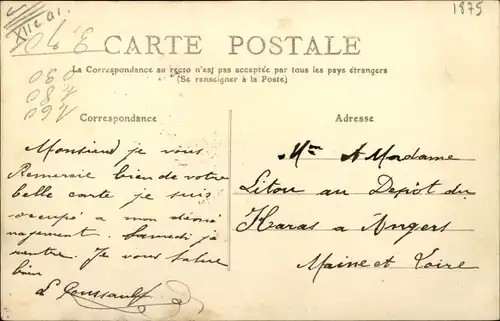 XII e a1.
1875
CARTE POSTALE
La Correspondance au recto n'est pas acceptée par tous les pays étrangers
(Se renseigner à la Poste)
Correspondance
Adresse
Monsieur je vous
Remercie bien de votre
belle carte je suis
occupé a mon démé
nagement. Samedi je
rentre. Je vous salue
bien
L Poussault
Mr A Madame
Litou au Depôt du
Haras a Angers
Maine et Loire